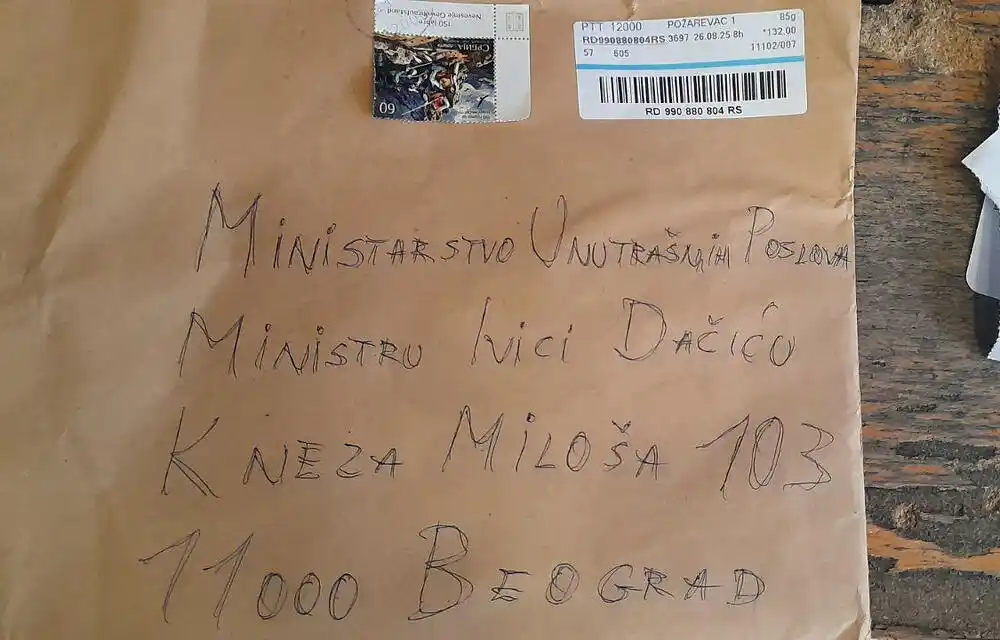 150 Jahre
Nevesinje Gewehraufstand
СРБИЈА
60
PTT 12000 POŽAREVAC 1 85g
RD990880804RS 3697 26.08.25 8h *132,00
57 605 11102/007
RD 990 880 804 RS
MINISTARSTVO UNUTRAŠNJIH POSLOVA
MINISTRU IVICI DAČIĆU
KNEZA MILOŠA 103
11000 BEOGRAD